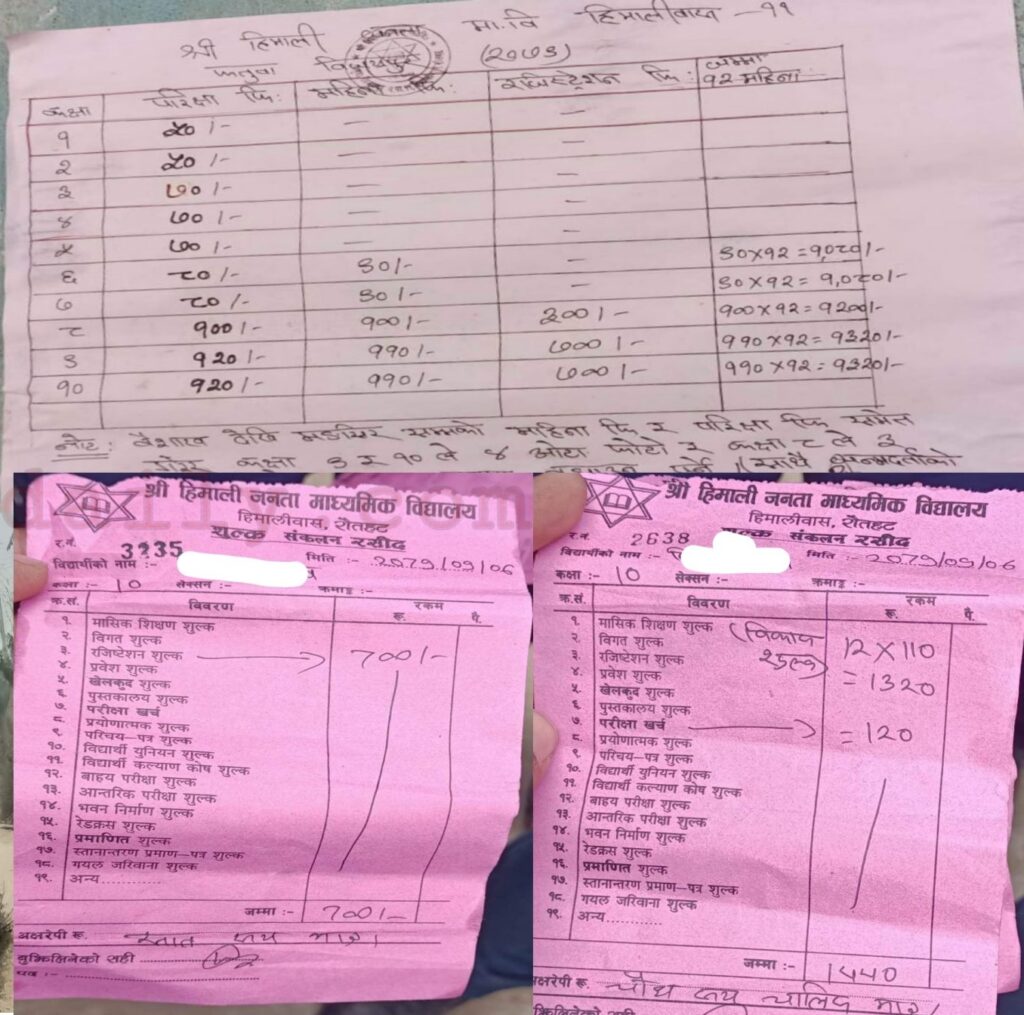 श्री हिमाली जनता मा.वि हिमालीवास - ११
फतुवा विजयपुर (२०७९)
कक्षा परिक्षा फि: महिना फि: रजिस्ट्रेशन फि: जम्मा १२ महिना
१ ५० /- — —
२ ५० /- — —
३ ७० /- — —
४ ७० /- — —
५ ७० /- — —
६ ८० /- ९०/- — ९०×१२ = १,०८०/-
७ ८० /- ९०/- — ९०×१२ = १,०८०/-
८ १०० /- १००/- ३००/- १००×१२ = १२००/-
९ १२० /- ११०/- ७००/- ११०×१२ = १३२०/-
१० १२० /- ११०/- ७००/- ११०×१२ = १३२०/-
नोट: बैशाख देखि मङसिर सम्मको महिना फि र परिक्षा फि समेत
कक्षा ९ र १० ले ४ ओटा फोटो र कक्षा ८ ले ३
(साथै जन्मदर्ताको
श्री हिमाली जनता माध्यमिक विद्यालय
हिमालीवास, रौतहट
शुल्क संकलन रसीद
र.नं. 3235
विद्यार्थीको नाम :- मिति :- 2079/09/06
कक्षा :- 10 सेक्सन :- क्रमाङ्क :-
क्र.सं. विवरण रकम
रू. पै.
१. मासिक शिक्षण शुल्क
२. विगत शुल्क
३. रजिष्टेशन शुल्क 700/-
४. प्रवेश शुल्क
५. खेलकुद शुल्क
६. पुस्तकालय शुल्क
७. परीक्षा खर्च
८. प्रयोणात्मक शुल्क
९. परिचय-पत्र शुल्क
१०. विद्यार्थी युनियन शुल्क
११. विद्यार्थी कल्याण कोष शुल्क
१२. बाहय परीक्षा शुल्क
१३. आन्तरिक परीक्षा शुल्क
१४. भवन निर्माण शुल्क
१५. रेडक्रस शुल्क
१६. प्रमाणित शुल्क
१७. स्तानान्तरण प्रमाण-पत्र शुल्क
१८. गयल जरिवाना शुल्क
१९. अन्य............
जम्मा :- 700/-
अक्षरेपी रू. सात सय मात्र।
बुझिलिनेको सही
पद :-
श्री हिमाली जनता माध्यमिक विद्यालय
हिमालीवास, रौतहट
शुल्क संकलन रसीद
र.नं. 2638
विद्यार्थीको नाम :- मिति :- 2079/09/06
कक्षा :- 10 सेक्सन :- क्रमाङ्क :-
क्र.सं. विवरण रकम
रू. पै.
१. मासिक शिक्षण शुल्क (विकाय 12×110
२. विगत शुल्क शुल्क)
३. रजिष्टेशन शुल्क = 1320
४. प्रवेश शुल्क
५. खेलकुद शुल्क
६. पुस्तकालय शुल्क
७. परीक्षा खर्च = 120
८. प्रयोणात्मक शुल्क
९. परिचय-पत्र शुल्क
१०. विद्यार्थी युनियन शुल्क
११. विद्यार्थी कल्याण कोष शुल्क
१२. बाहय परीक्षा शुल्क
१३. आन्तरिक परीक्षा शुल्क
१४. भवन निर्माण शुल्क
१५. रेडक्रस शुल्क
१६. प्रमाणित शुल्क
१७. स्तानान्तरण प्रमाण-पत्र शुल्क
१८. गयल जरिवाना शुल्क
१९. अन्य............
जम्मा :- 1440
अक्षरेपी रू. चौध सय चालिस मात्र।
बुझिलिनेको सही